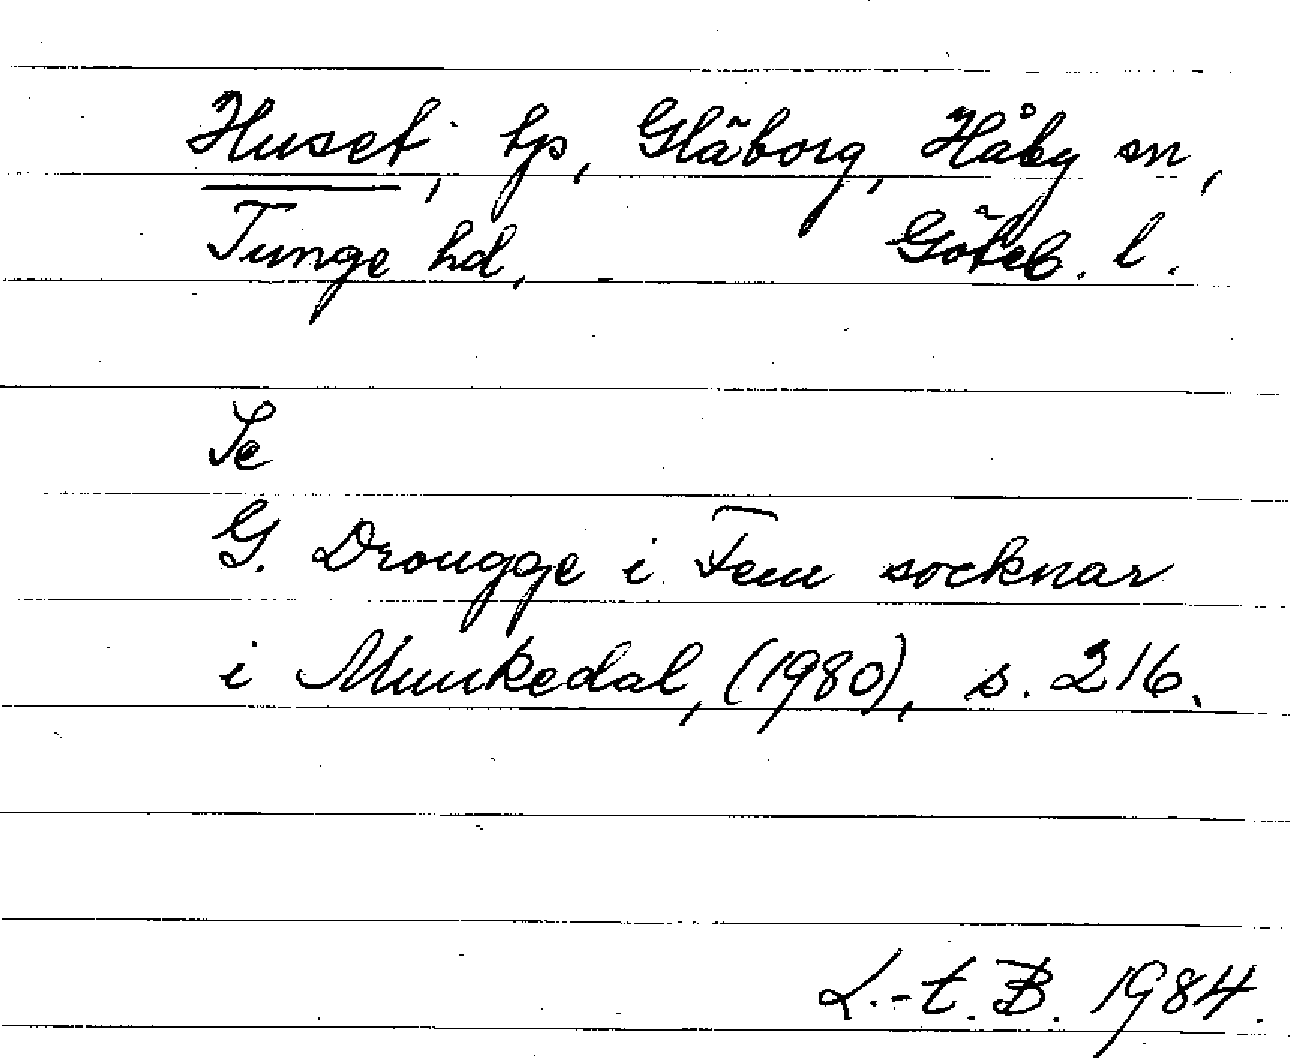 Huset, tp, Gläborg, Håby sn,
Tunge hd, Göteb. l.
Se
G. Drougge i Fem socknar
i Munkedal, (1980), s. 216.
L.-t. B. 1984.